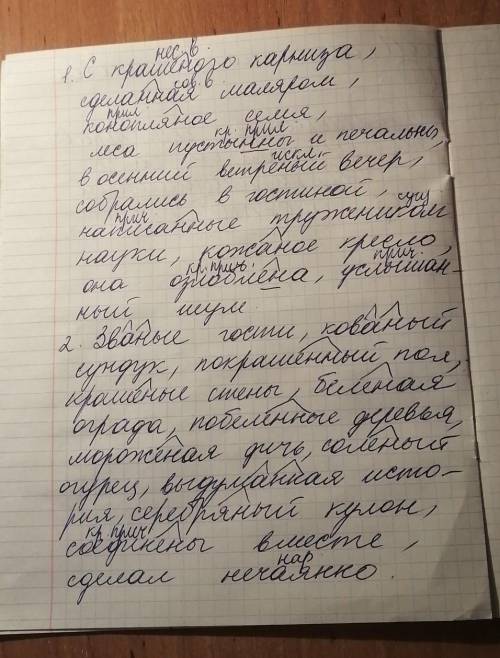 нес. в.
1. С крашеного карниза,
сов. в
сделанная маляром,
прил
конопляное семя,
кр. прил.
леса пустынны и печальны,
искл.
в осенний ветреный вечер,
собрались в гостиной,
прич сущ
написанные тружеником
науки, кожаное кресло,
кр. прич. прич.
она озлоблена, услышан-
ный шум.
2. Званые гости, кованый
сундук, покрашенный пол,
крашеные стены, беленая
ограда, побеленные деревья,
мороженая дичь, соленый
огурец, выдуманная исто-
рия, серебряный кулон,
кр. прич
соединены вместе,
нар
сделал нечаянно.